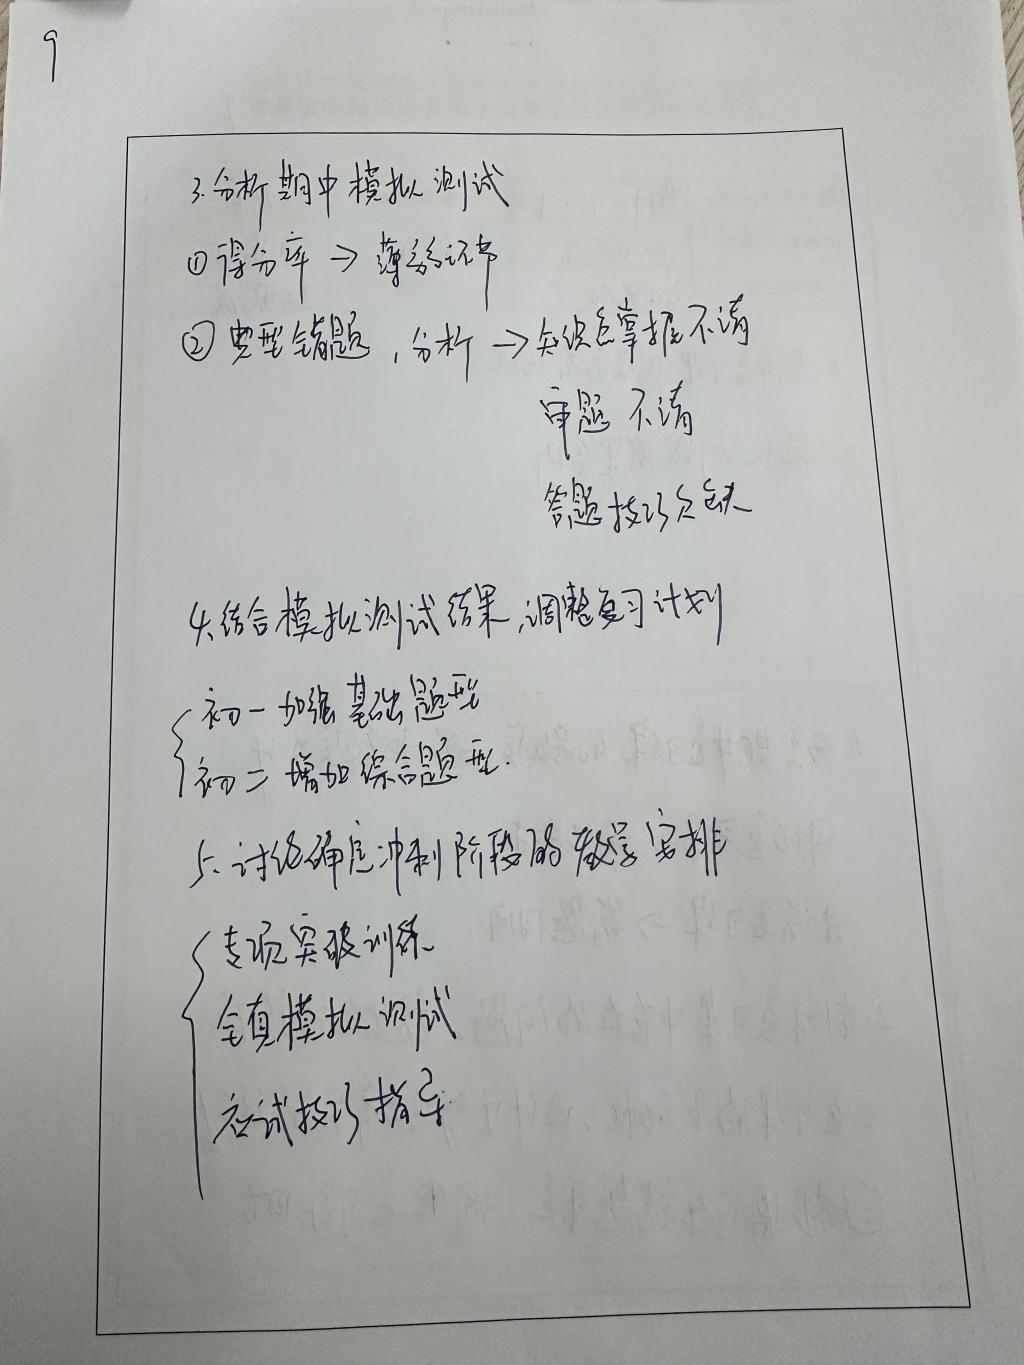 9
3.分析期中模拟测试
①得分率→薄弱环节
②典型错题,分析→知识点掌握不清
审题不清
答题技巧欠缺
4.结合模拟测试结果,调整复习计划
初一加强基础题型
初二增加综合题型.
5.讨论确定冲刺阶段的教学安排
专项突破训练
全真模拟测试
应试技巧指导